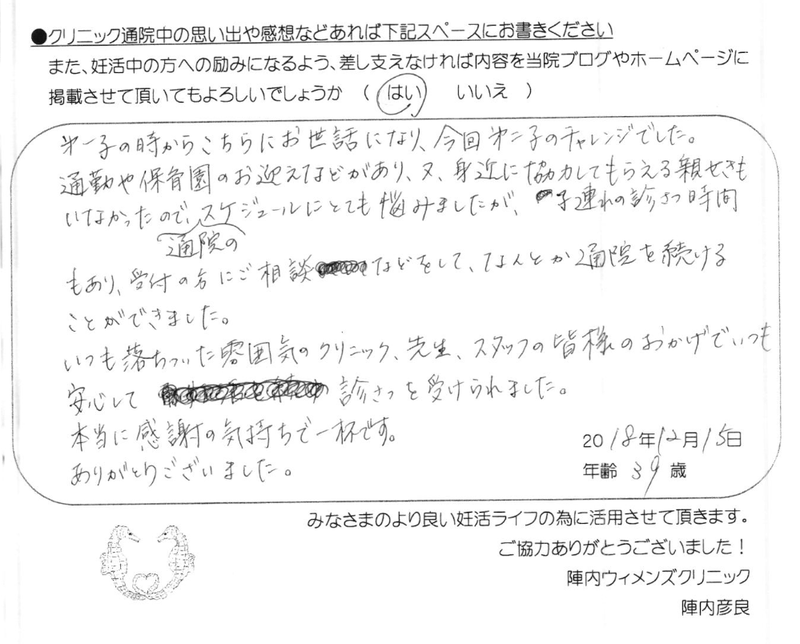 ●クリニック通院中の思い出や感想などあれば下記スペースにお書きください
また、妊活中の方への励みになるよう、差し支えなければ内容を当院ブログやホームページに
掲載させて頂いてもよろしいでしょうか （ はい いいえ ）
第一子の時からこちらにお世話になり、今回第二子のチャレンジでした。
通勤や保育園のお迎えなどがあり、又、身近に協力してもらえる親せきも
いなかったので、スケジュールにとても悩みましたが、子連れの診さつ時間
通院の
もあり、受付の方にご相談などをして、なんとか通院を続ける
ことができました。
いつも落ちついた雰囲気のクリニック、先生、スタッフの皆様のおかげでいつも
安心して診さつを受けられました。
本当に感謝の気持ちで一杯です。
ありがとうございました。
2018年12月15日
年齢 39 歳
みなさまのより良い妊活ライフの為に活用させて頂きます。
ご協力ありがとうございました！
陣内ウィメンズクリニック
陣内彦良